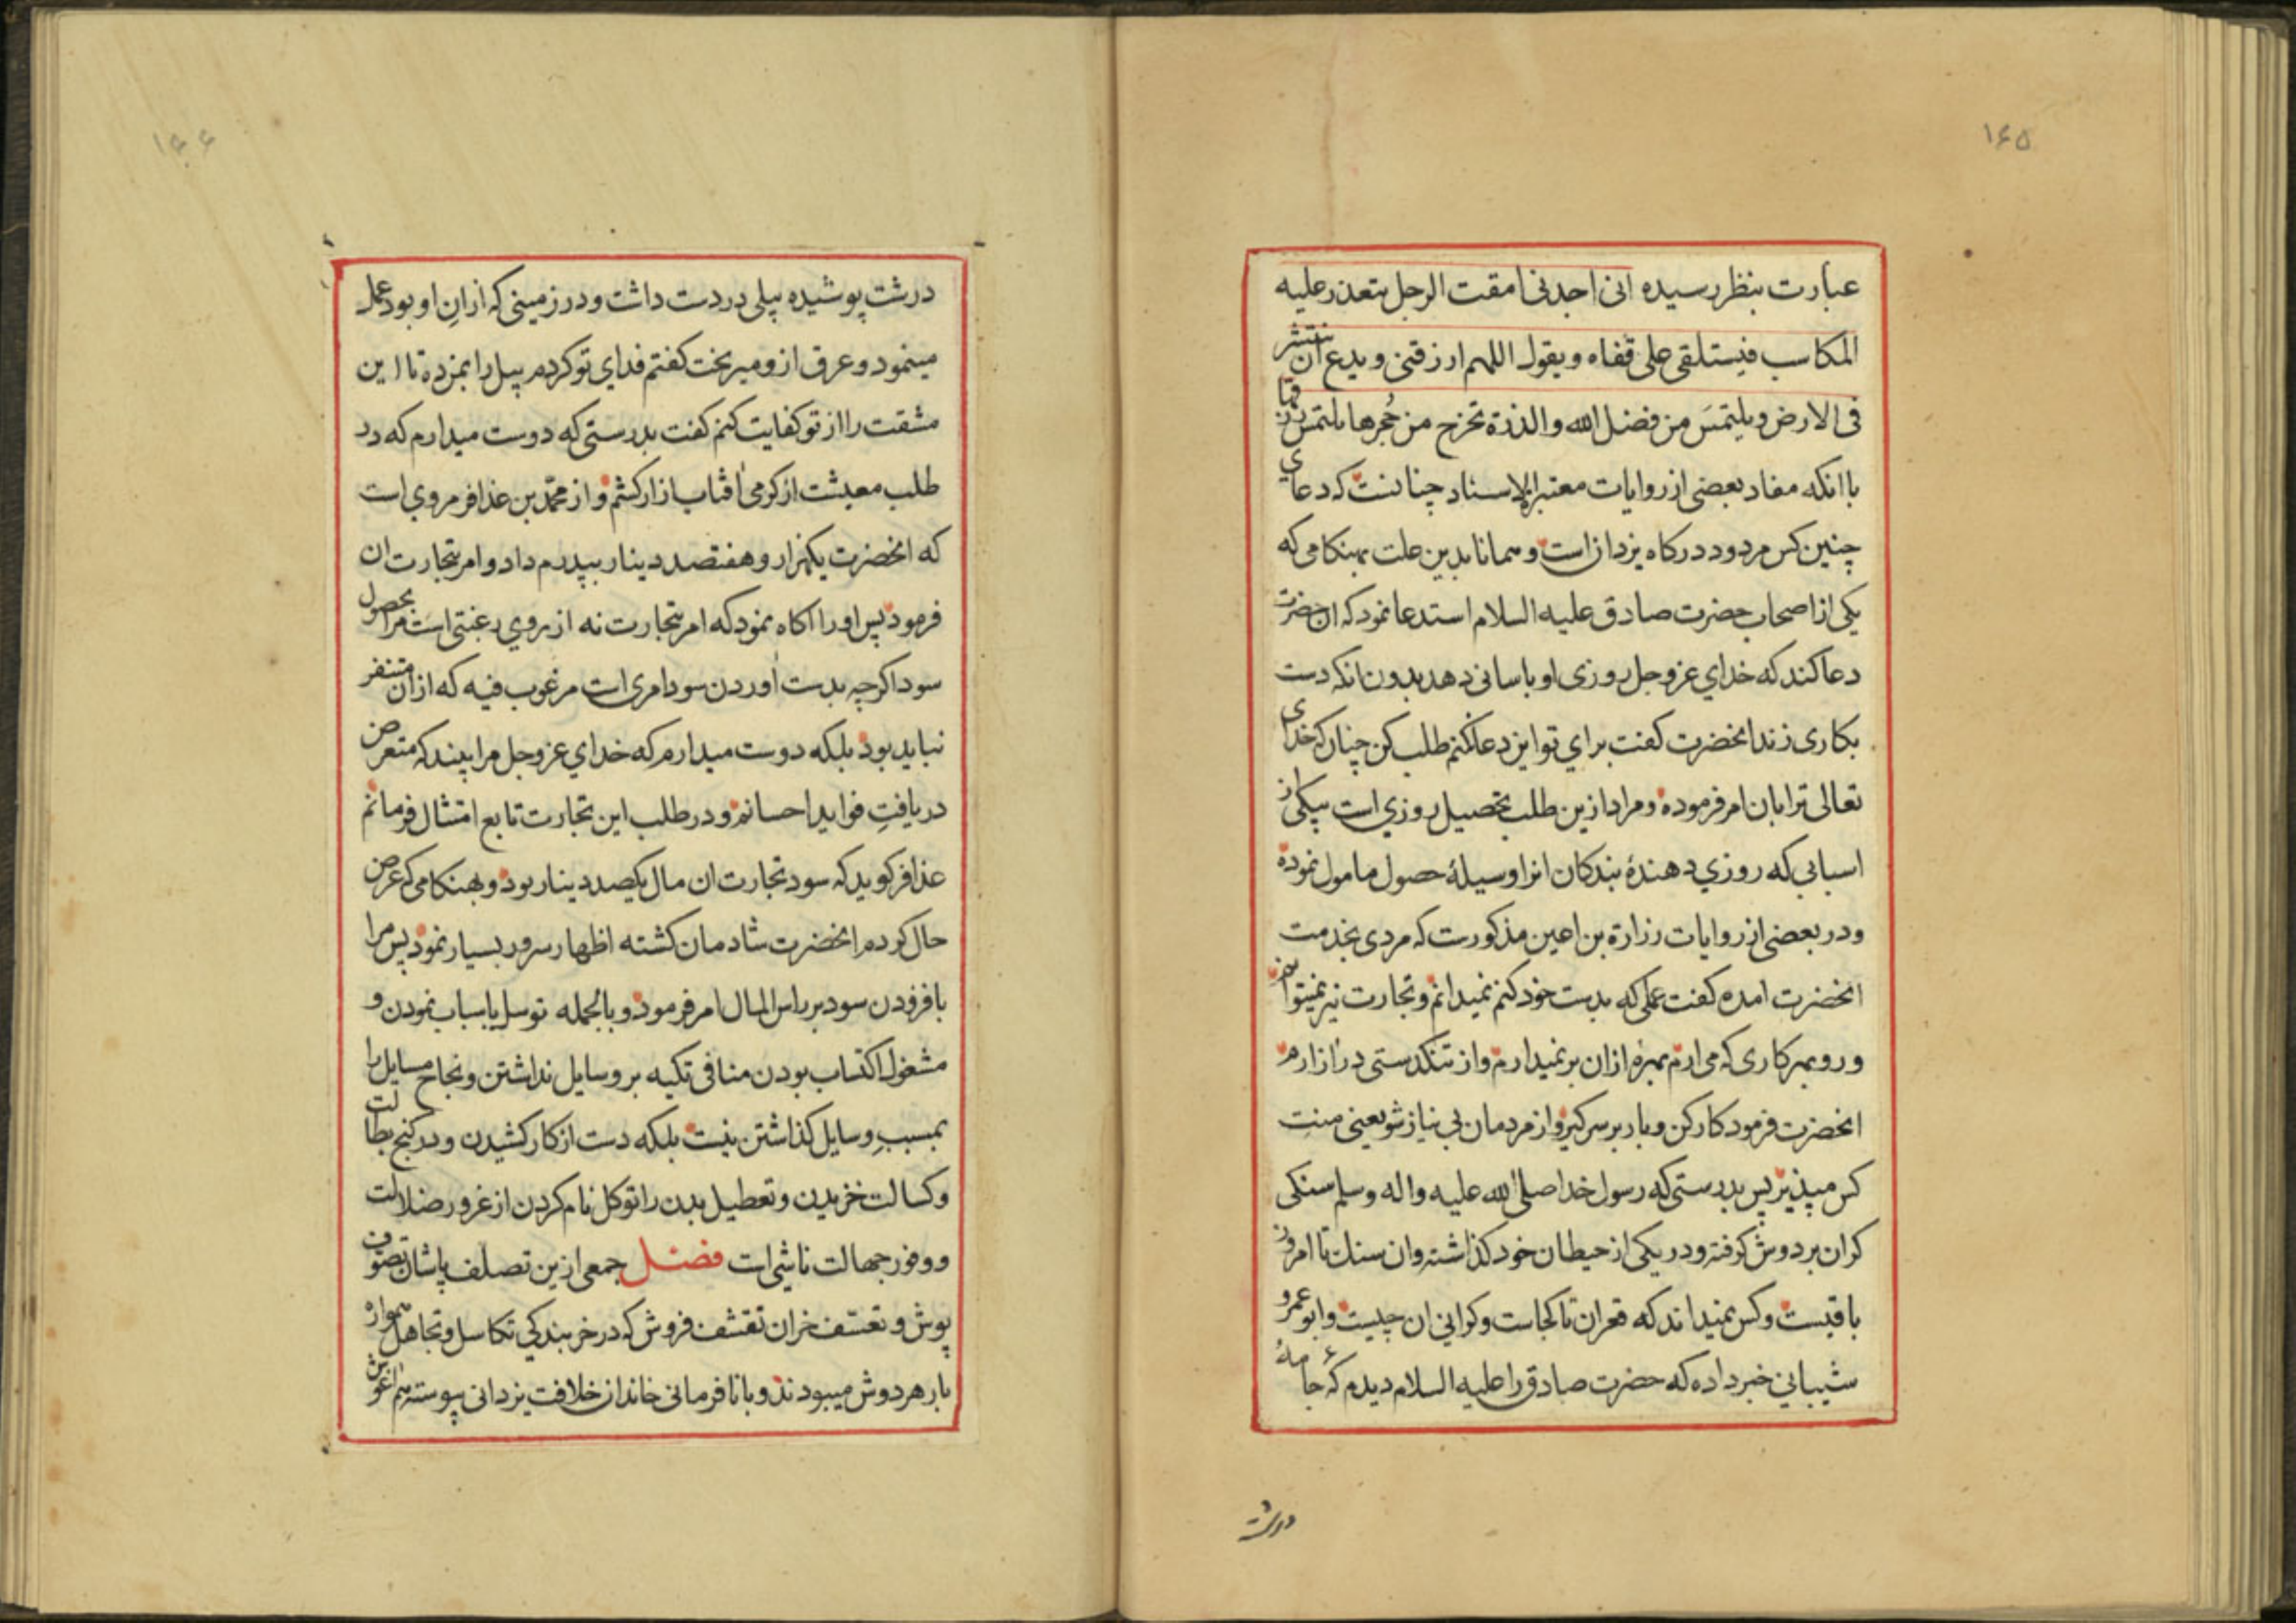 ۱۶۵
عبارت بنظر رسیده انی اجدنی امقت الرجل یتعذر علیه
المکاسب فیستلقی علی قفاه ویقول اللهم ارزقنی ویدع ان ینتشر
فی الارض ویلتمسَ من فضل الله والذرة تخرج من جُحرها یلتمس رزقها
باانکه مفاد بعضی از روایات معتبر الاسناد چنانست که دعای
چنین کس مردود درکاه یزدان است وهمانا بدین علت بهنکامی که
یکی از اصحاب حضرت صادق علیه السلام استدعا نمود که ان حضرت
دعا کند که خدای عز وجل روزی او باسانی دهد بدون انکه دست
بکاری زند انحضرت کفت برای تو این دعا نکنم طلب کن چنان که خدای
تعالی ترا بان امر فرموده ومراد ازین طلب تحصیل روزی است بیکی از
اسبابی که روزی دهندهٔ بندکان انرا وسیلهٔ حصول مامول نموده
ودر بعضی از روایات زرارة بن اعین مذکورست که مردی بخدمت
انحضرت امده کفت عملی که بدست خود کنم نمیدانم وتجارت نیز نمیتوانم
ورو بهر کاری که می ارم بهرهٔ ازان برنمیدارم واز تنکدستی در ازارم
انحضرت فرمود کار کن وبار بر سر کیر واز مردمان بی نیاز شو یعنی منت
کس مپذیر پس بدرستی که رسول خدا صلی الله علیه واله وسلم سنکی
کران بر دوش کرفته ودر یکی از حیطان خود کذاشته وان سنك تا امروز
باقیست وکس نمیداند که قعران تا کجاست وکرانی ان چیست وابو عمرو
شیبانی خبر داده که حضرت صادق را علیه السلام دیدم که جامهٔ
درشت
۱۶۶
درشت پوشیده بیلی در دست داشت ودر زمینی که ازانِ او بود عمل
مینمود وعرق ازو میریخت کفتم فدای تو کردم بیل را بمن ده تا این
مشقت را از تو کفایت کنم کفت بدرستی که دوست میدارم که در
طلب معیشت از کرمی افتاب ازار کشم واز محمّد بن عذافر مروی است
که انحضرت یکهزار وهفتصد دینار بپدرم داد وامر بتجارت ان
فرمود پس اورا اکاه نمود که امر بتجارت نه از روی رغبتی است مرا بحصول
سود اکرچه بدست اوردن سود امری است مرغوب فیه که ازان متنفر
نباید بود بلکه دوست میدارم که خدای عز وجل مرا بیند که متعرض
دریافتِ فواید احسانم ودر طلب این تجارت تابع امتثال فرمانم
عذافر کوید که سود تجارت ان مال یکصد دینار بود وبهنکامی که عرض
حال کردم انحضرت شادمان کشته اظهار سرور بسیار نمود پس مرا
بافزودن سود بر راس المال امر فرمود وبالجمله توسل باسباب نمودن و
مشغول اکتساب بودن منافی تکیه بر وسایل نداشتن ونجاح مسایل را
بمسببِ وسایل کذاشتن نیست بلکه دست از کار کشیدن ودر کنج بطالت
وکسالت خزیدن وتعطیل بدن را توکل نام کردن از غرور ضلالت
ووفور جهالت ناشی است فصل جمعی ازین تصلف پاشان تصوف
پوش وتعسّف خران تقشف فروش که در خربندکی تکاسل وتجاهل همواره
بار هر دوش میبودند وبا نافرمانی خاندان خلافت یزدانی پیوسته هم اغوش